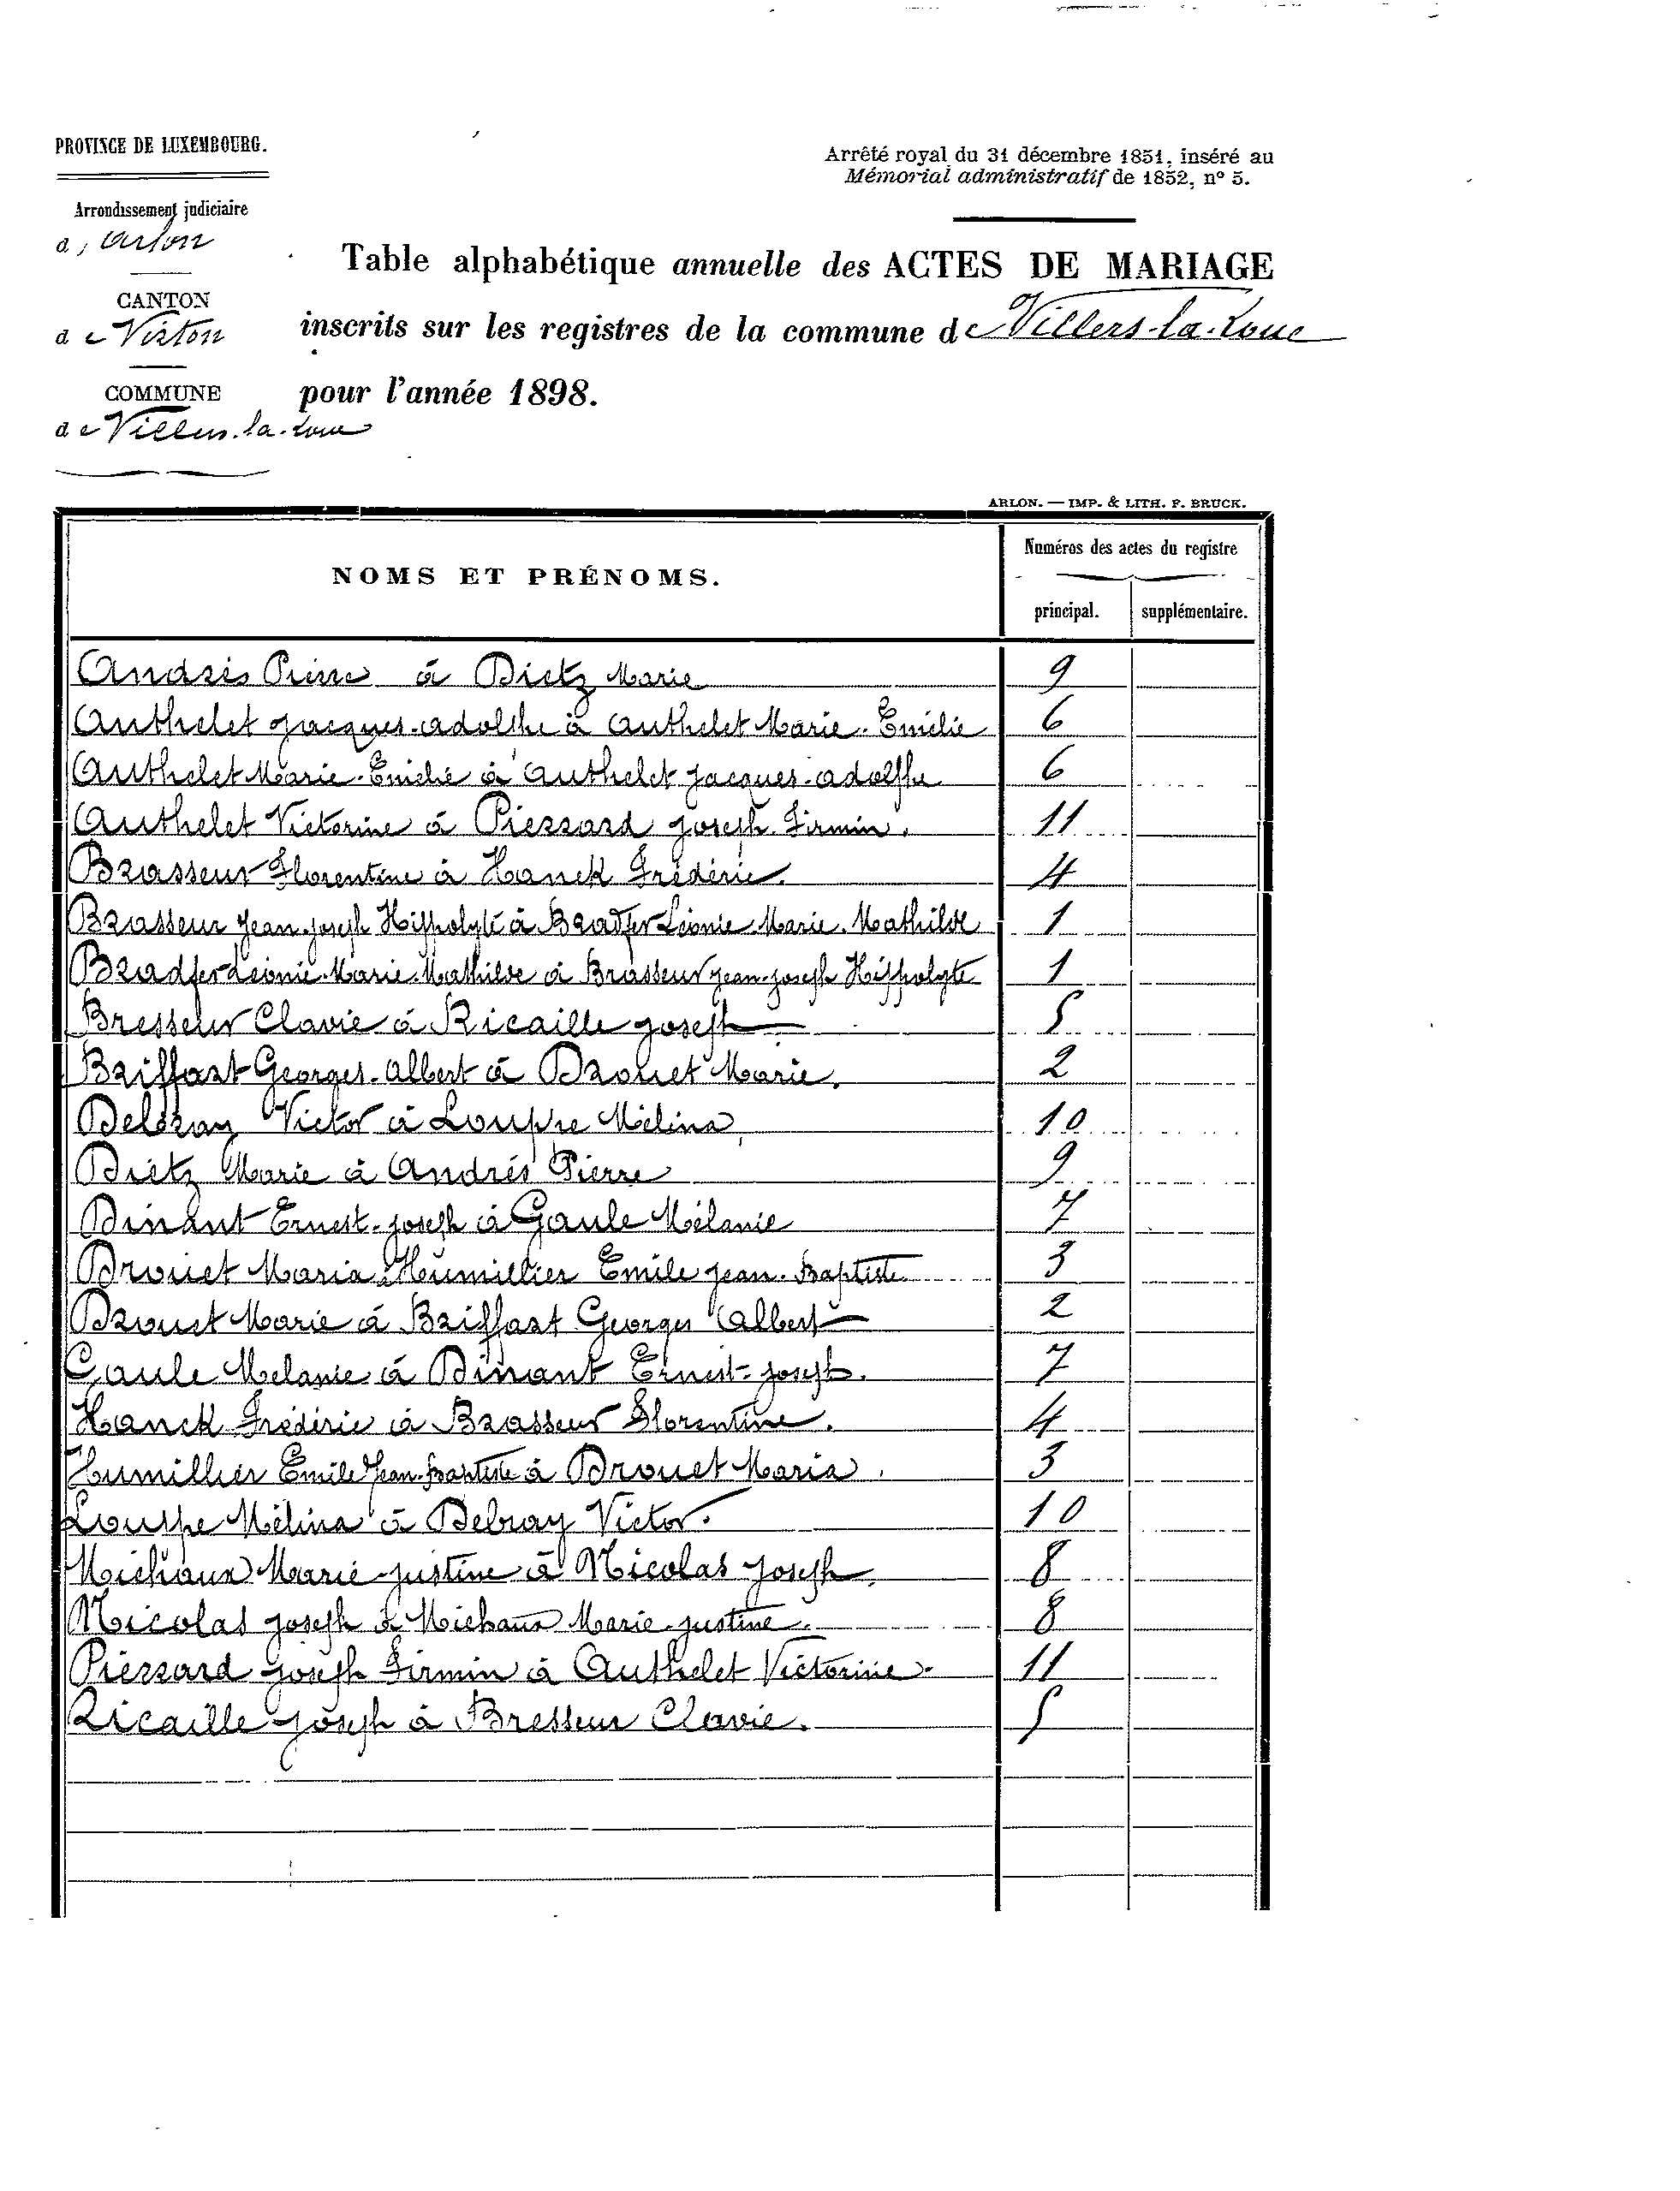 PROVINCE DE LUXEMBOURG.
Arrêté royal du 31 décembre 1851, inséré au
Mémorial administratif de 1852, n° 5.
Arrondissement judiciaire
d'Arlon
CANTON
de Virton
COMMUNE
de Villers-la-Loue
Table alphabétique annuelle des ACTES DE MARIAGE
inscrits sur les registres de la commune de Villers-la-Loue
pour l'année 1898.
ARLON. — IMP. & LITH. F. BRUCK.
NOMS ET PRÉNOMS.
Numéros des actes du registre
principal. supplémentaire.
Andrés Pierre à Dietz Marie 9
Authelet Jacques-Adolphe à Authelet Marie-Emélie 6
Authelet Marie-Emélie à Authelet Jacques-Adolphe 6
Authelet Victorine à Piessard Joseph Firmin. 11
Brasseur Florentine à Hanck Frédéric. 4
Brasseur Jean-Joseph Hippolyte à Bradfer Léonie-Marie-Mathilde 1
Bradfer Léonie-Marie-Mathilde à Brasseur Jean-Joseph Hippolyte 1
Bresseur Clavie à Ricaille Joseph 5
Briffart Georges-Albert à Drouet Marie. 2
Delbray Victor à Louppe Mélina 10
Dietz Marie à Andrés Pierre 9
Dinant Ernest-Joseph à Gaule Mélanie 7
Drouet Maria à Humillier Emile Jean-Baptiste 3
Drouet Marie à Briffart Georges Albert 2
Gaule Mélanie à Dinant Ernest-Joseph. 7
Hanck Frédéric à Brasseur Florentine. 4
Humillier Emile Jean-Baptiste à Drouet Maria. 3
Louppe Mélina à Debray Victor. 10
Michaux Marie-Justine à Nicolas Joseph. 8
Nicolas Joseph à Michaux Marie-Justine. 8
Piessard Joseph Firmin à Authelet Victorine. 11
Ricaille Joseph à Bresseur Clavie. 5